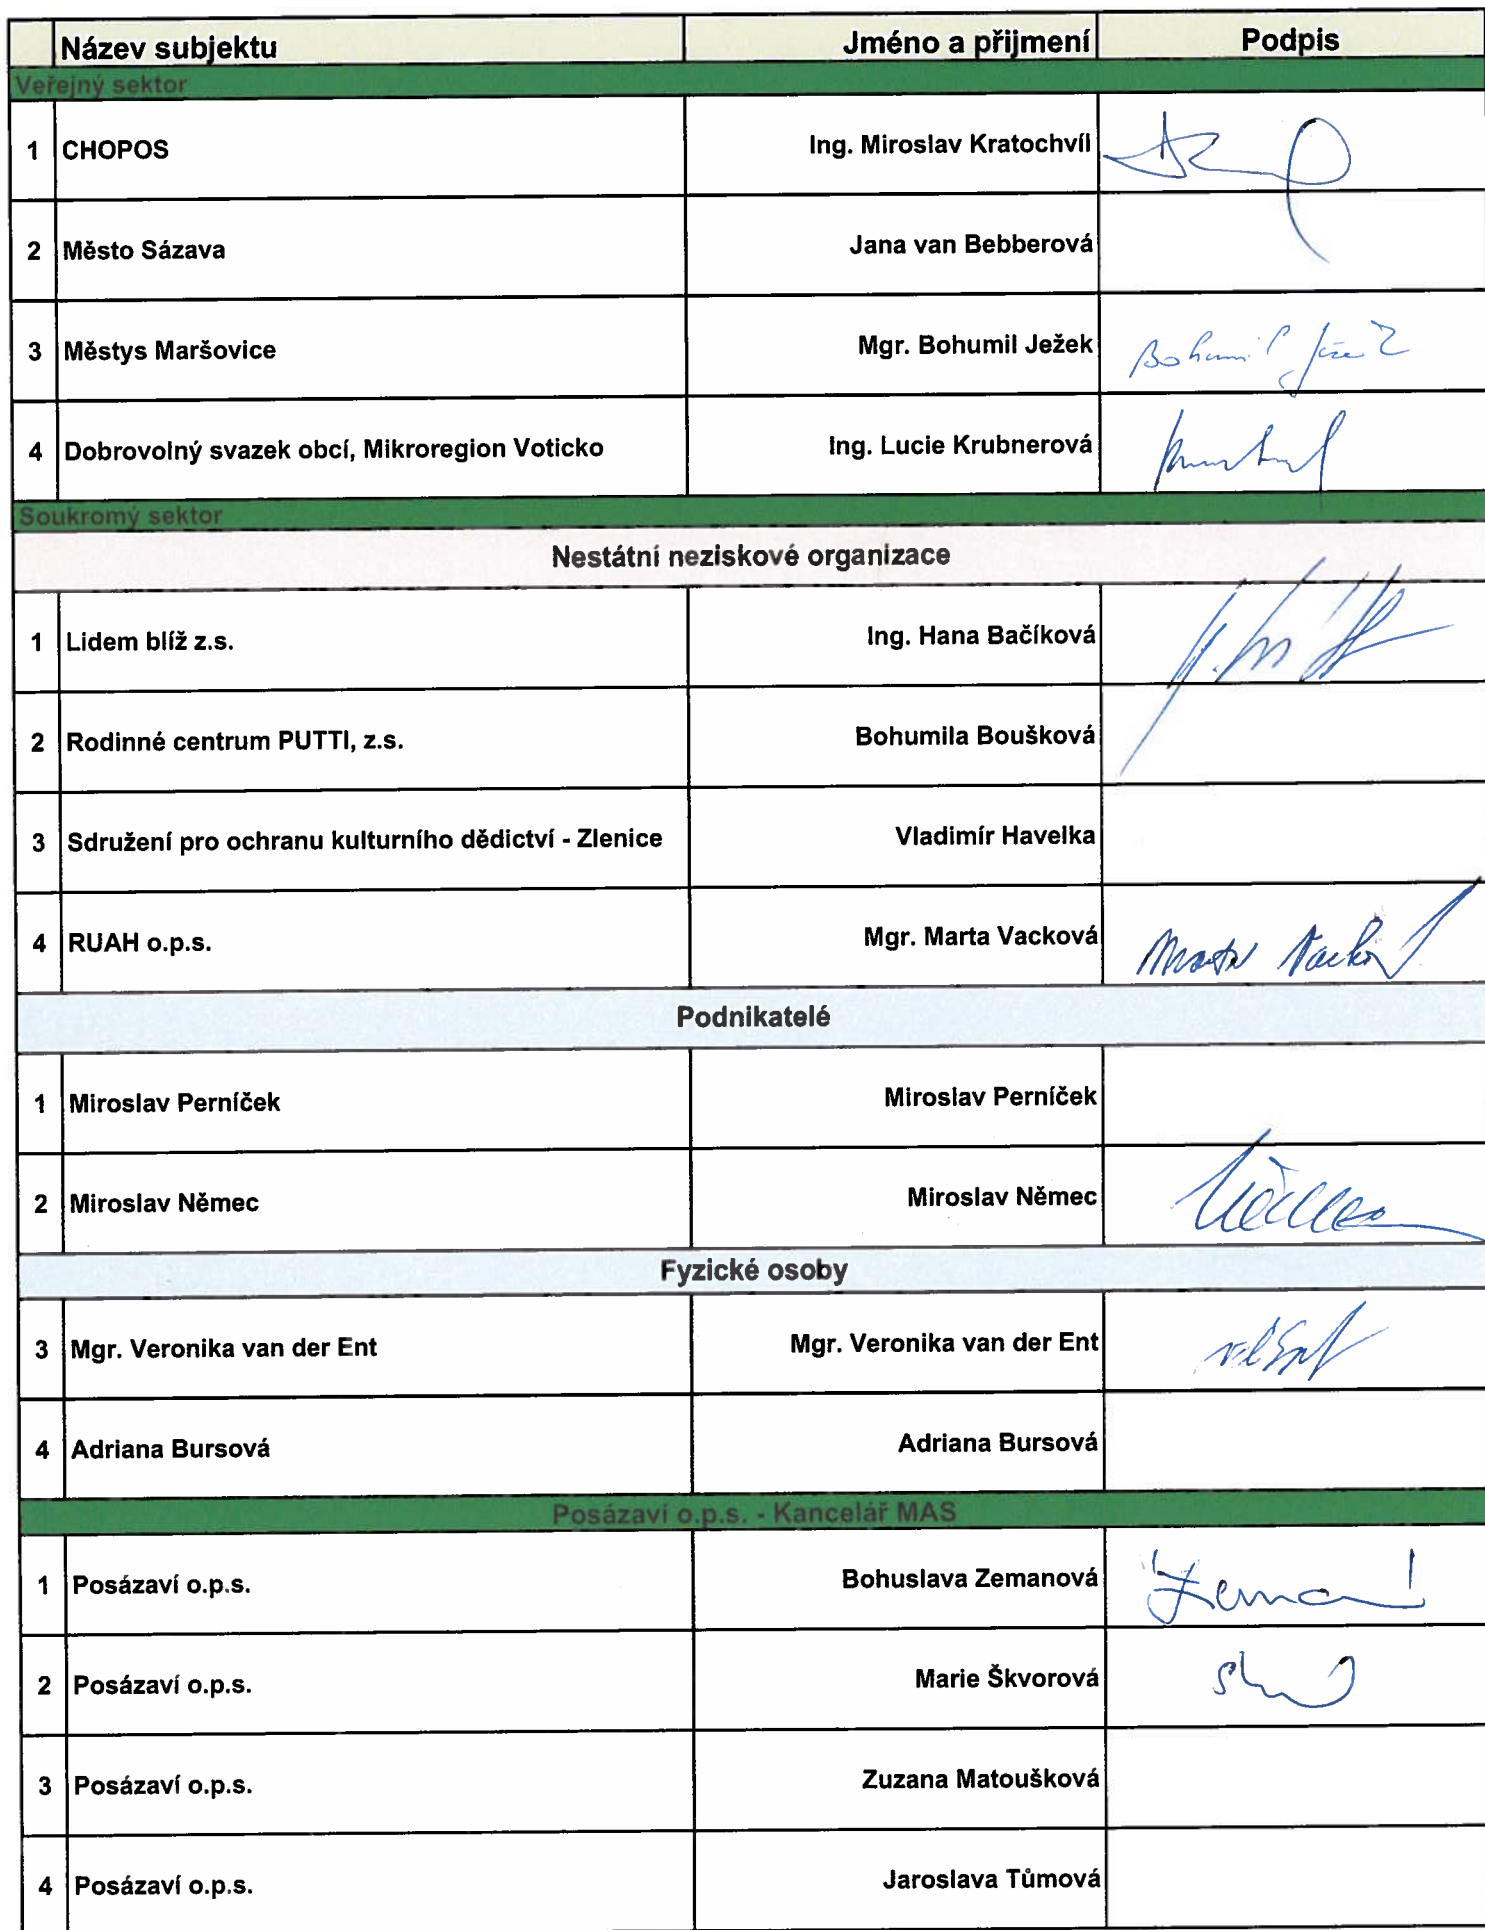 Název subjektu Jméno a přijmení Podpis
Veřejný sektor
1 CHOPOS Ing. Miroslav Kratochvíl
2 Město Sázava Jana van Bebberová
3 Městys Maršovice Mgr. Bohumil Ježek Bohumil Ježek
4 Dobrovolný svazek obcí, Mikroregion Voticko Ing. Lucie Krubnerová
Soukromý sektor
Nestátní neziskové organizace
1 Lidem blíž z.s. Ing. Hana Bačíková
2 Rodinné centrum PUTTI, z.s. Bohumila Boušková
3 Sdružení pro ochranu kulturního dědictví - Zlenice Vladimír Havelka
4 RUAH o.p.s. Mgr. Marta Vacková Marta Vacková
Podnikatelé
1 Miroslav Perníček Miroslav Perníček
2 Miroslav Němec Miroslav Němec
Fyzické osoby
3 Mgr. Veronika van der Ent Mgr. Veronika van der Ent
4 Adriana Bursová Adriana Bursová
Posázaví o.p.s. - Kancelář MAS
1 Posázaví o.p.s. Bohuslava Zemanová
2 Posázaví o.p.s. Marie Škvorová
3 Posázaví o.p.s. Zuzana Matoušková
4 Posázaví o.p.s. Jaroslava Tůmová